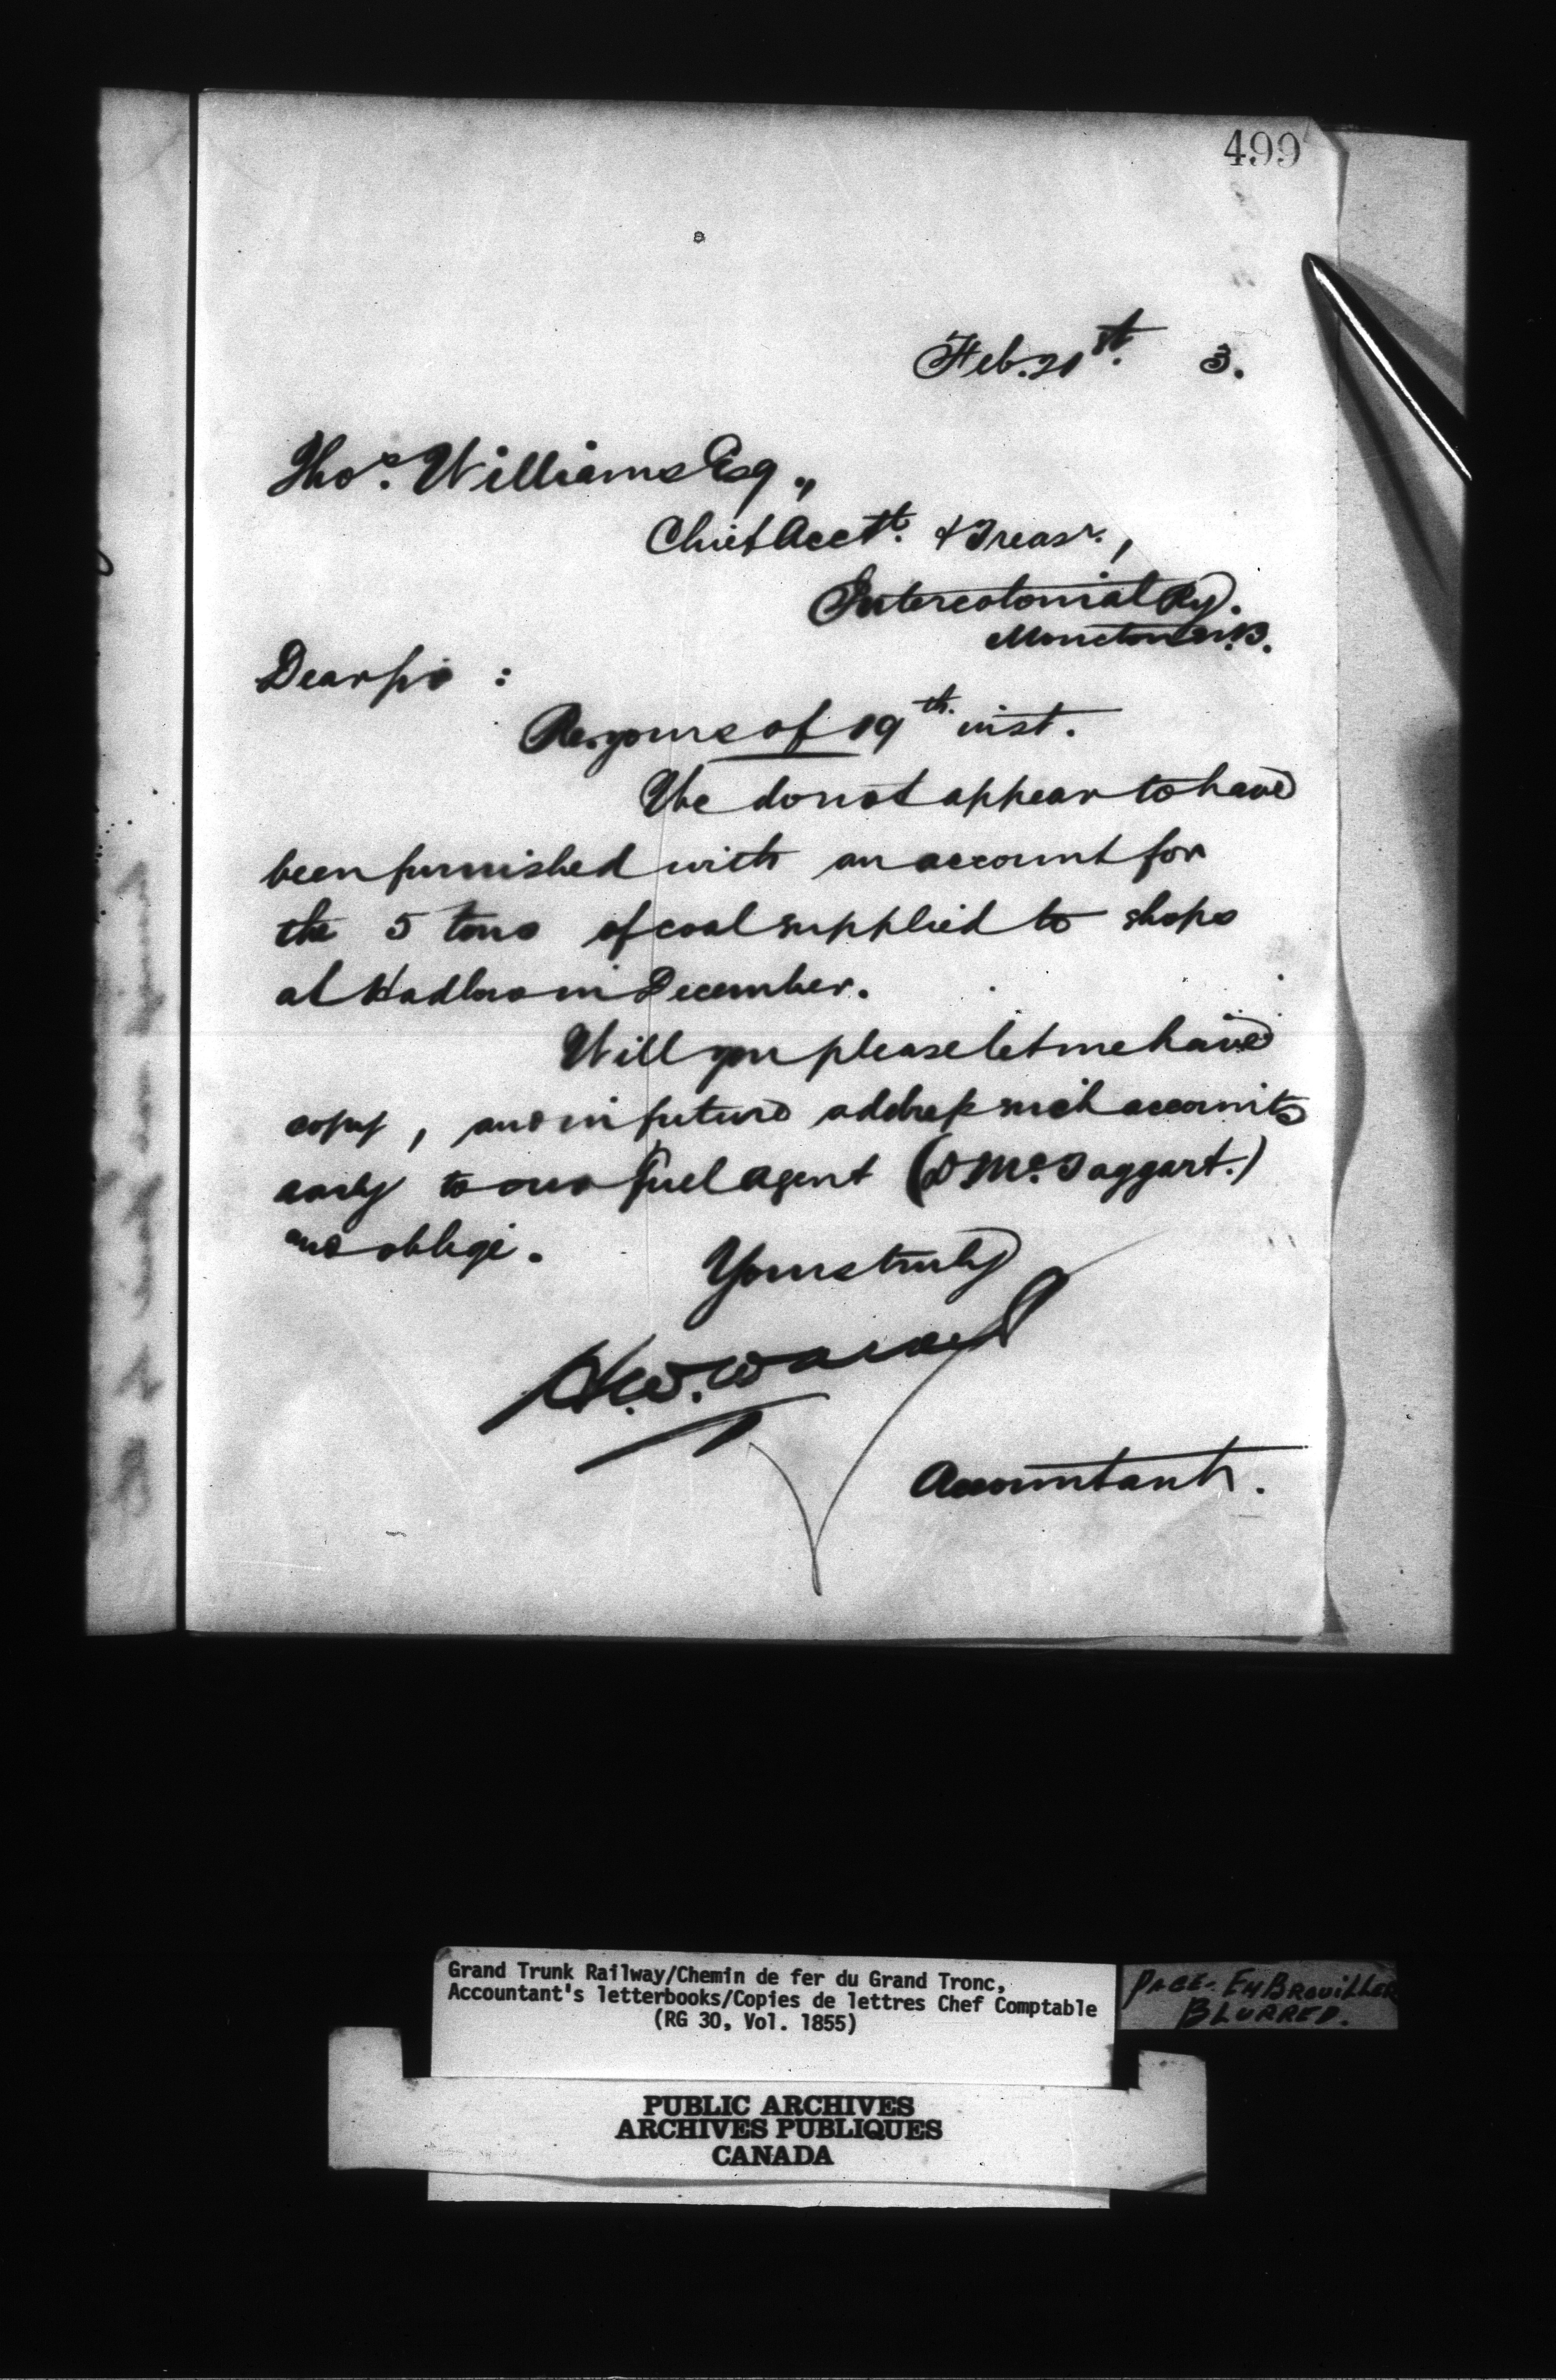 499
Feb. 21st. 3.
Thos. Williams Esq.,
Chief Acctt. & Treasr.,
Intercolonial Ry.
Moncton N.B.
Dear Sir :
Re. yours of 19th. inst.
We do not appear to have
been furnished with an account for
the 5 tons of coal supplied to shops
at Hadlow in December.
Will you please let me have
copy, and in future address such accounts
early to our Fuel Agent (D McTaggart.)
and oblige.
Yours truly
H.W. Walker
Accountant.
Grand Trunk Railway/Chemin de fer du Grand Tronc,
Accountant's letterbooks/Copies de lettres Chef Comptable
(RG 30, Vol. 1855)
PAGE - EMBROUILLER
BLURRED.
PUBLIC ARCHIVES
ARCHIVES PUBLIQUES
CANADA